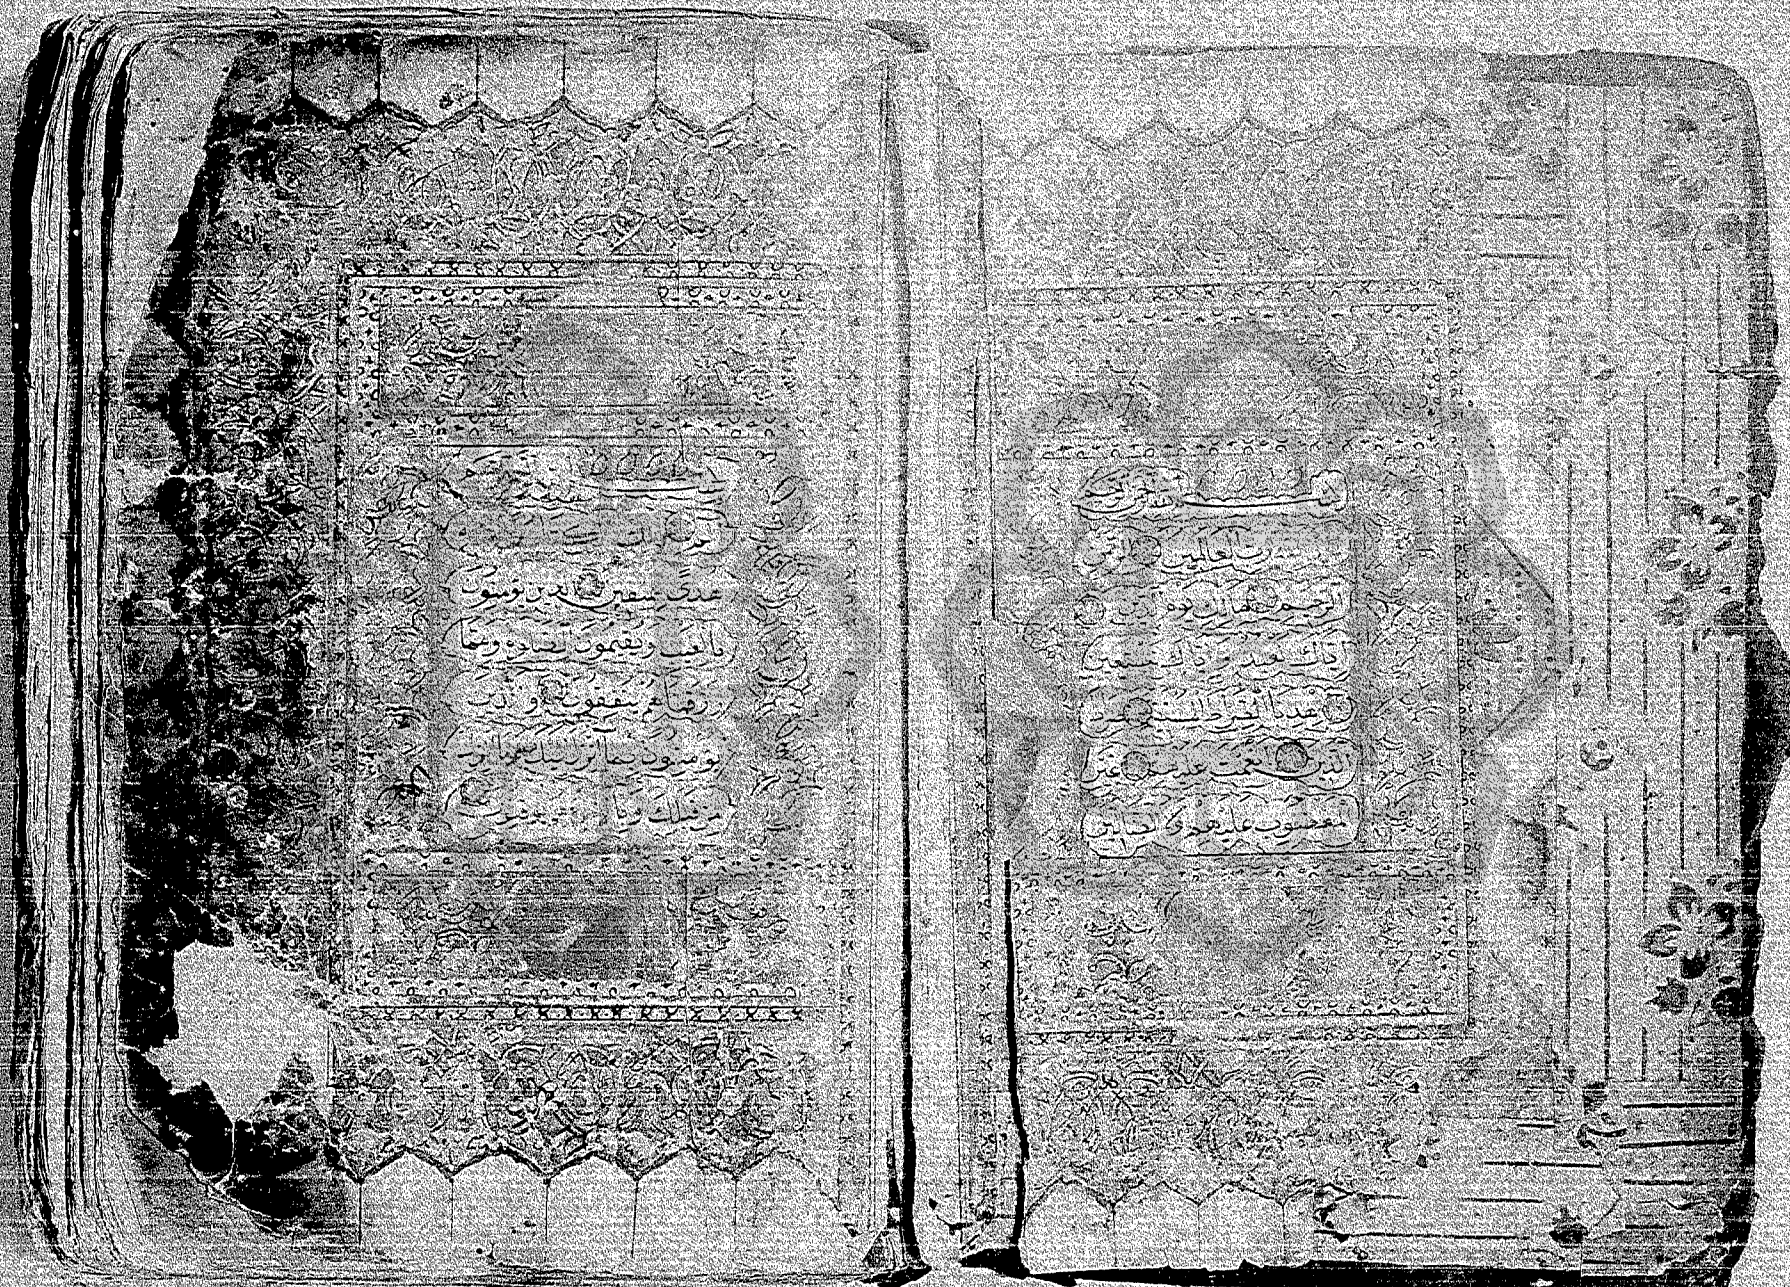 بسم الله الرحمن الرحيم
الحمد لله رب العالمين الرحمن
الرحيم مالك يوم الدين
إياك نعبد وإياك نستعين
اهدنا الصراط المستقيم صراط
الذين أنعمت عليهم غير
المغضوب عليهم ولا الضالين
بسم الله الرحمن الرحيم
الم ذلك الكتاب لا ريب فيه
هدى للمتقين الذين يؤمنون
بالغيب ويقيمون الصلاة ومما
رزقناهم ينفقون والذين
يؤمنون بما أنزل إليك وما أنزل
من قبلك وبالآخرة هم يوقنون